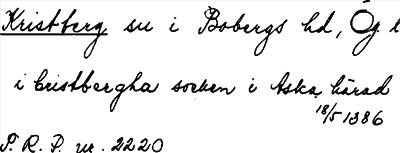 Kristberg sn i Bobergs hd, Ög l
i Cristbergha socken i Aska härad
18/5 1386
S. R. P. nr. 2220